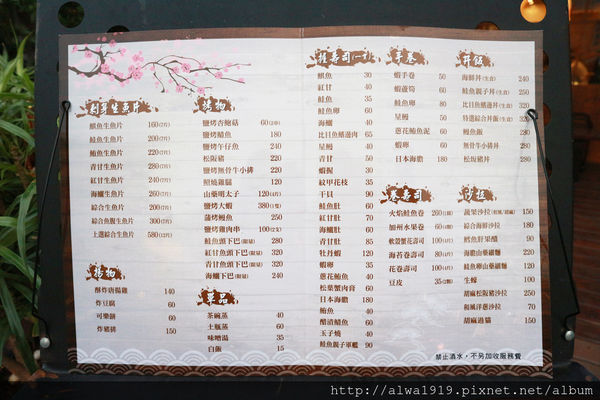 刺身生魚片
旗魚生魚片 160(2片)
鮭魚生魚片 200(2片)
鮪魚生魚片 220(2片)
青甘生魚片 280(2片)
紅甘生魚片 240(2片)
海鱺生魚片 260(2片)
綜合生魚片 200(2片)
綜合魚腹生魚片 300(2片)
上選綜合生魚片 580(12片)
揚物
酥炸唐揚雞 140
炸豆腐 60
可樂餅 60
炸豬排 150
燒物
鹽烤杏鮑菇 60
鹽烤鯖魚 180
鹽烤午仔魚 240
松阪豬 220
鹽烤無骨牛小排 220
照燒雞腿 120
山藥明太子 120
鹽烤大蝦 380
蒲燒鰻魚 250
鹽烤雞肉串 100
鮭魚頭下巴(限量) 280
紅甘頭下巴(限量) 320
青甘魚頭下巴(限量) 320
海鱺下巴(限量) 240
單品
茶碗蒸 40
土瓶蒸 60
味噌湯 35
白飯 15
握壽司(一)
旗魚 30
紅甘 40
鮭魚 35
鮭魚卵 60
海鱺 40
比目魚鰭邊肉 65
星鰻 50
青甘 50
蝦握 30
紋甲花枝 35
干貝 90
鮭魚肚 60
紅甘肚 70
海鱺肚 60
青甘魚肚 85
牡丹蝦 120
蝦卵 35
蔥花鮪魚 40
松葉蟹肉膏 60
日本海膽 180
鮪魚 40
醋漬鯖魚 60
玉子燒 40
鮭魚親子軍艦 90
手卷
蝦手卷 50
蝦蘆筍 60
鮭魚卵 80
星鰻 60
蔥花鮪魚泥 60
蝦卵 60
日本海膽 180
卷壽司
火焰鮭魚卷 260
加州水果卷 60
軟殼蟹花壽司 100
海苔卷壽司 80
花卷壽司 100
豆皮 35
丼飯
海鮮丼(生食) 240
鮭魚親子丼(生食) 250
比目魚鰭邊丼(生食) 320
特選綜合丼飯(生食) 320
鰻魚飯 280
無骨牛小排丼 280
松坂豬丼 280
沙拉
蔬果沙拉 150
綜合海鮮沙拉 180
鱈魚肝果醋 90
海膽山藥細麵 120
鮭魚卵山藥細麵 120
生蠔 100
胡麻松阪豬沙拉 250
和風洋蔥沙拉 70
胡麻過貓 150
禁止酒水,不另加收服務費
http://alwa1919.pixnet.net/album